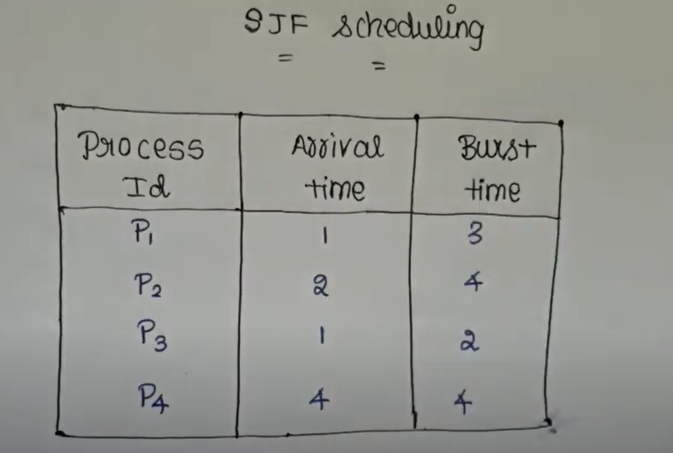 SJF scheduling
Process Id Arrival time Burst time
P1 1 3
P2 2 4
P3 1 2
P4 4 4